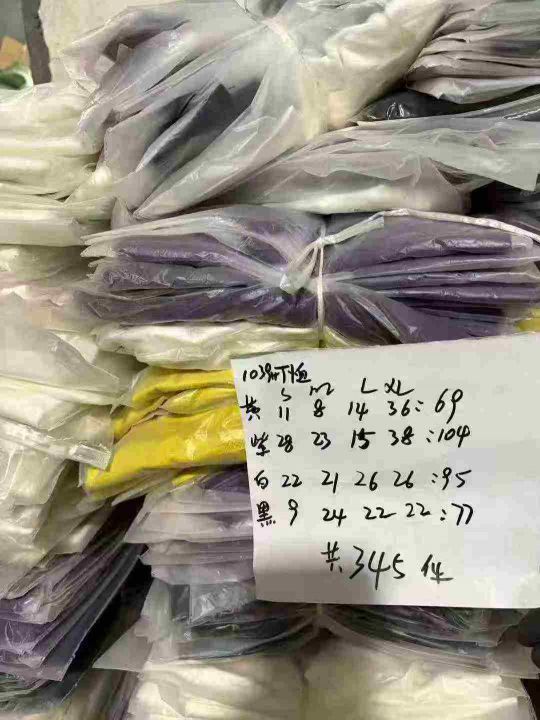 1038#T恤
S M L XL
黄 11 8 14 36:69
紫 28 23 15 38:104
白 22 21 26 26:95
黑 9 24 22 22:77
共345件